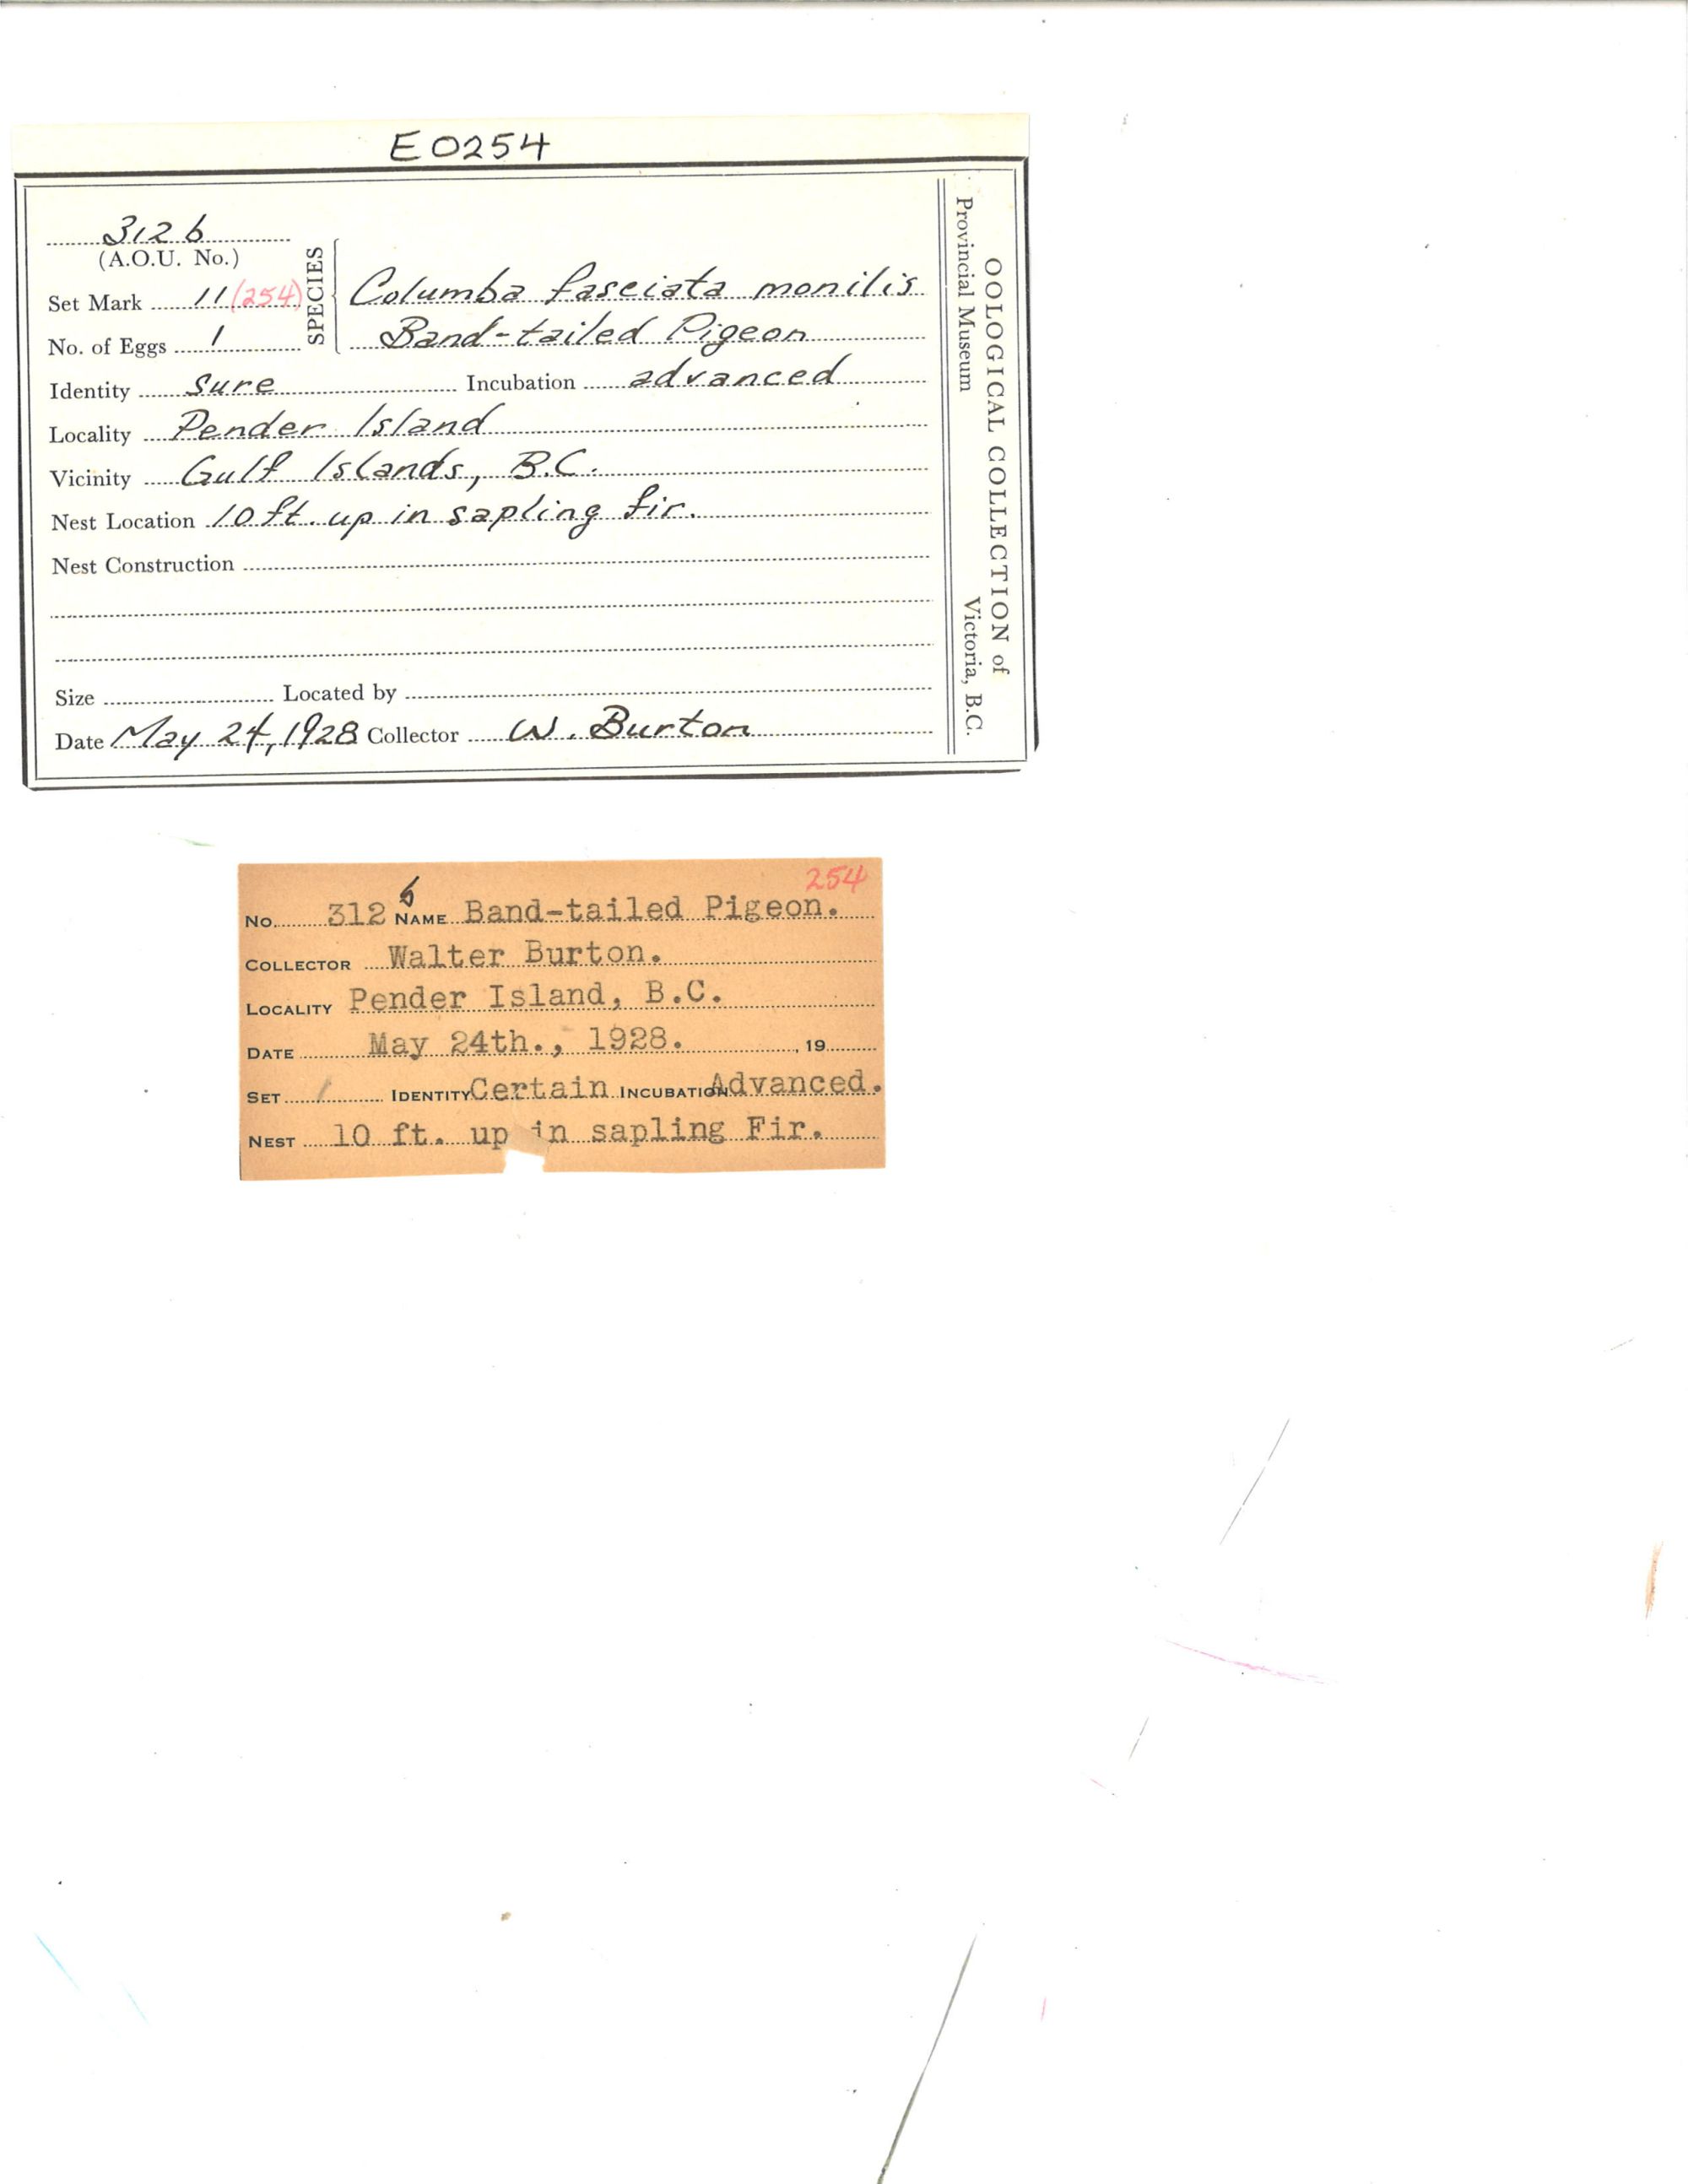 E0254
312b
(A.O.U. No.)
Set Mark 11 (254)
No. of Eggs 1
SPECIES
Columba fasciata monilis
Band-tailed Pigeon
Identity sure Incubation advanced
Locality Pender Island
Vicinity Gulf Islands, B.C.
Nest Location 10 ft. up in sapling fir.
Nest Construction
Size Located by
Date May 24, 1928 Collector W. Burton
OOLOGICAL COLLECTION of
Provincial Museum Victoria, B.C.
254
No. 312 b NAME Band-tailed Pigeon.
COLLECTOR Walter Burton.
LOCALITY Pender Island, B.C.
DATE May 24th., 1928. , 19
SET 1 IDENTITY Certain INCUBATION Advanced.
NEST 10 ft. up in sapling Fir.